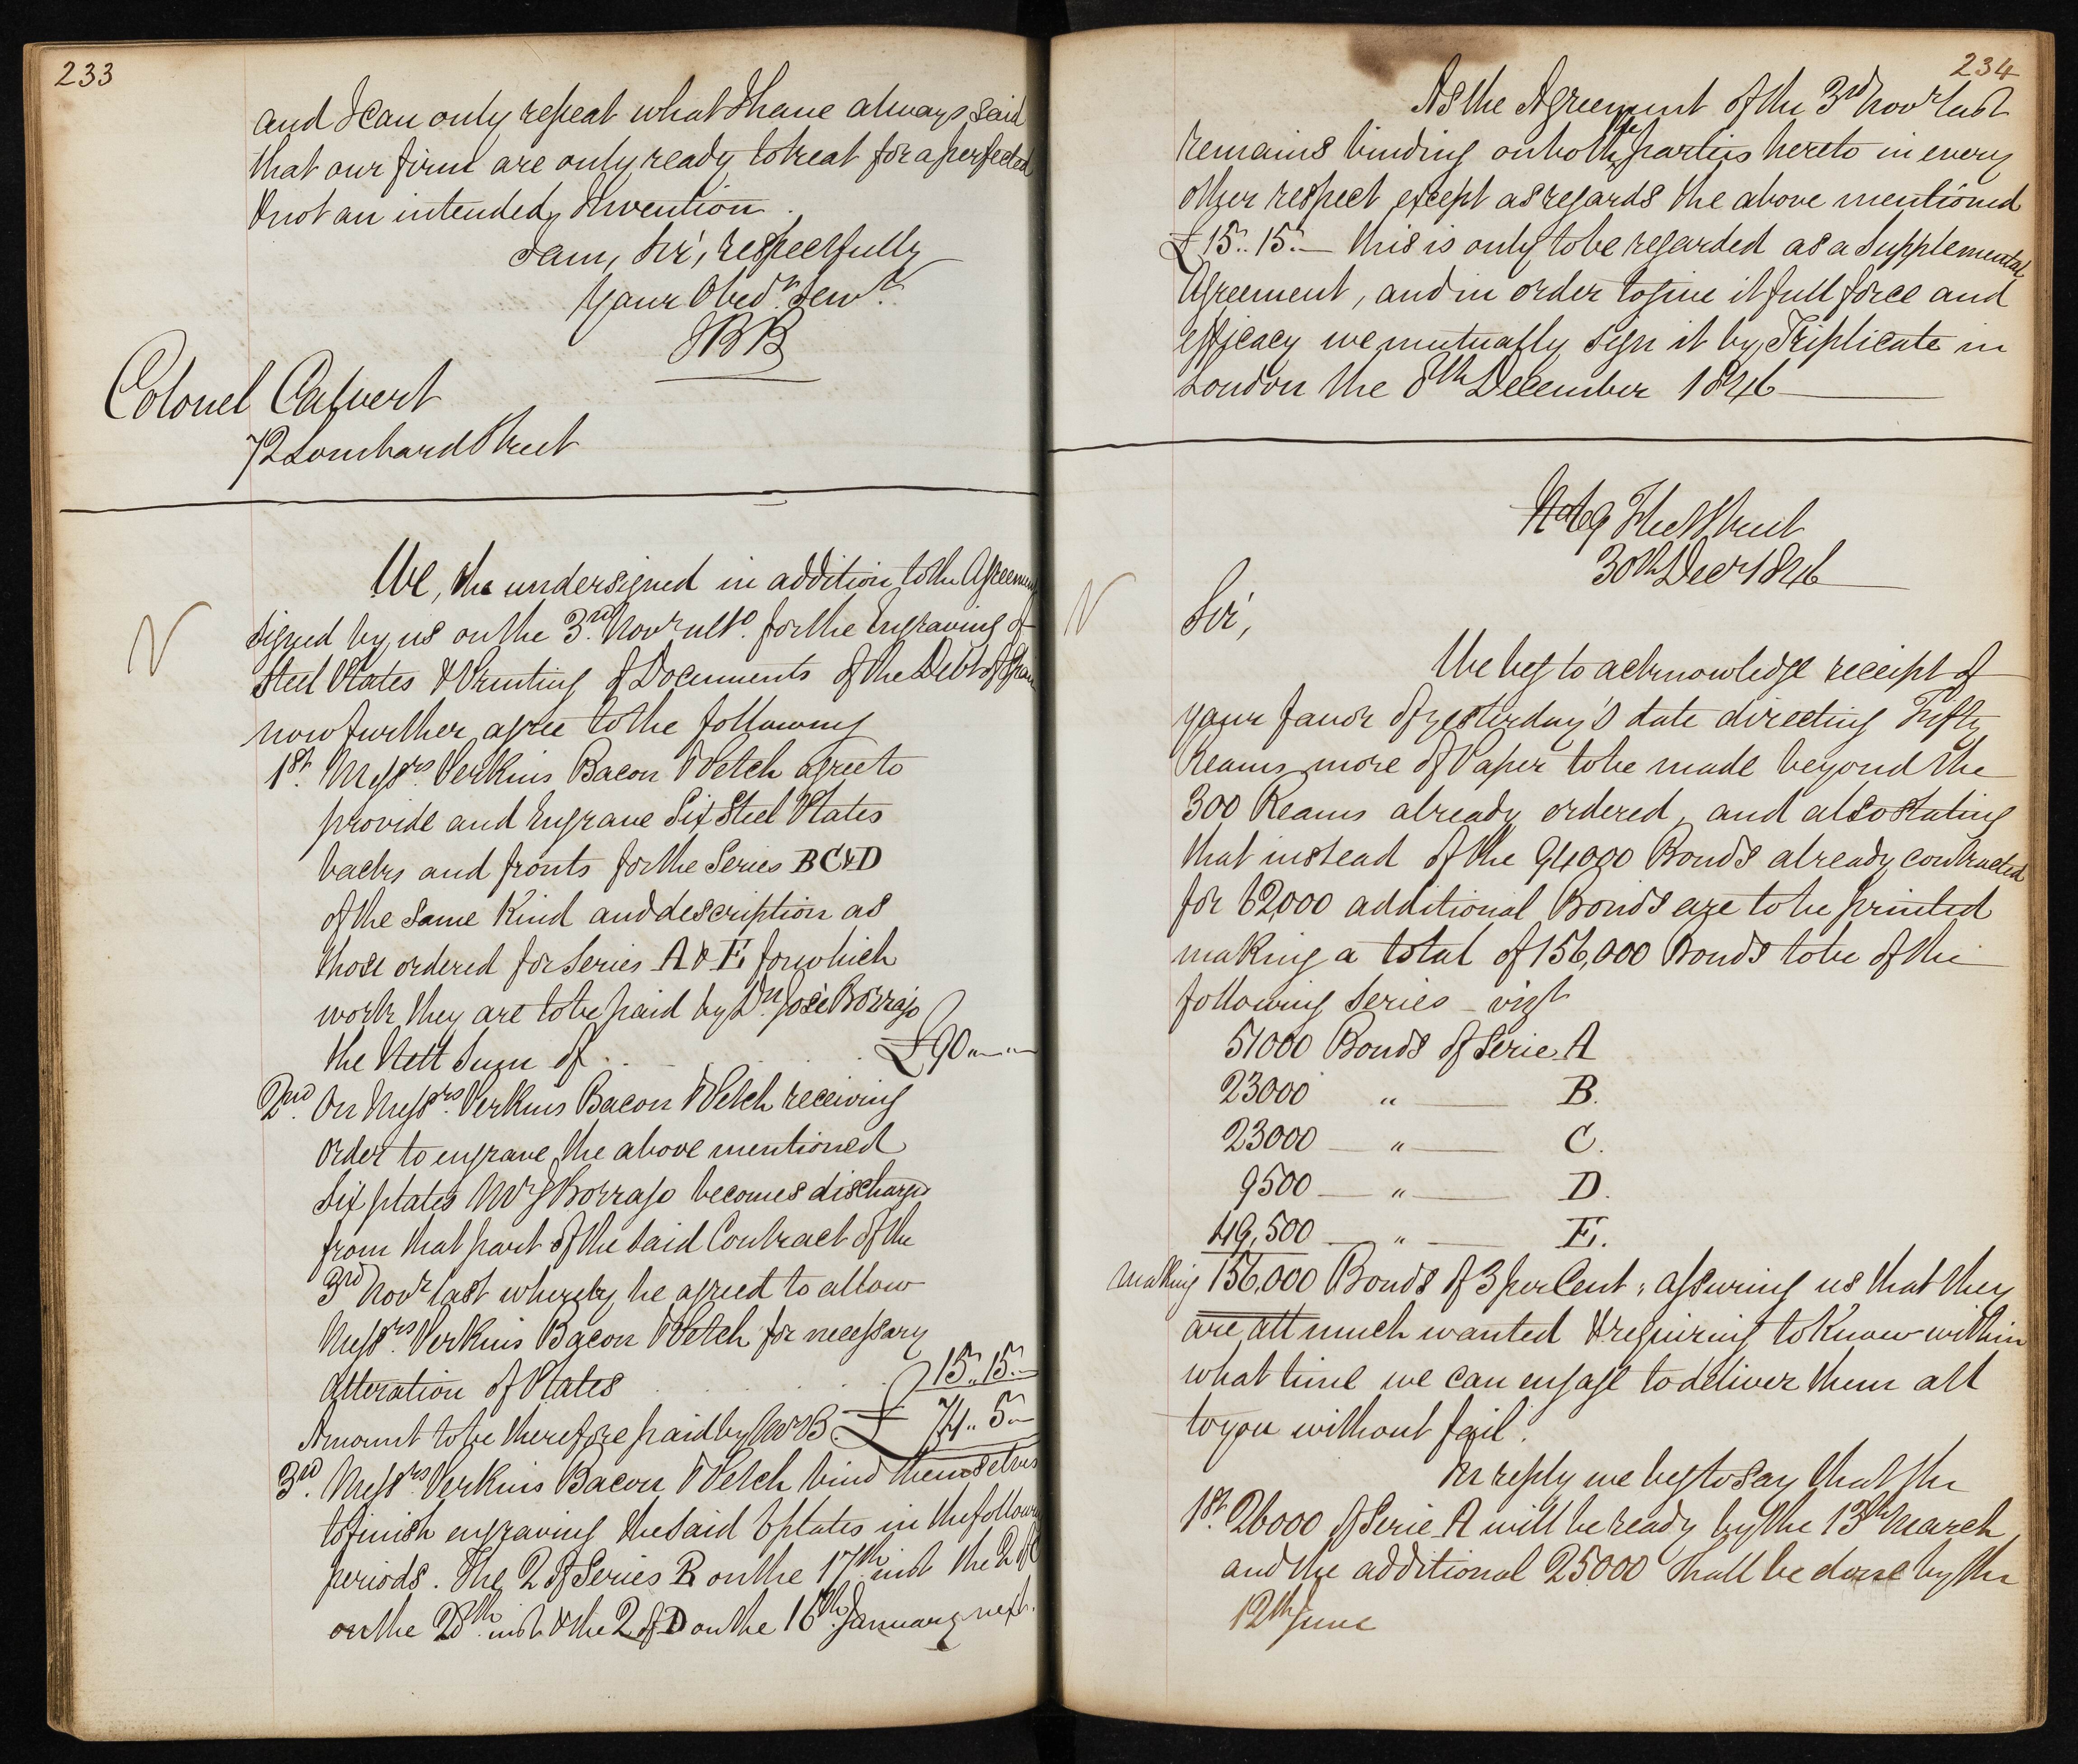 233
and I can only repeat what I have always said
that our firm are only ready to treat for a perfected
& not an intended, Invention.
I am, Sir, respectfully
Your Obedt. Servt.
JBB
Colonel Calvert
72 Lombard Street
We, the undersigned in addition to the Agreement
signed by us on the 3rd. Novr ulto. for the Engraving of
Steel Plates & Printing of Documents of the Debt of Spain
now further agree to the following
1st. Messrs. Perkins Bacon & Petch agree to
provide and Engrave Six Steel Plates
backs and fronts for the Series B C & D
of the same Kind and description as
those ordered for Series A & E for which
work they are to be paid by Dn. José Borrajo
the Nett Sum of . . . £90 " — " —
2nd. On Messrs. Perkins Bacon & Petch receiving
order to engrave the above mentioned
six plates Mr J Borrajo becomes discharged
from that part of the said Contract of the
3rd Novr last whereby he agreed to allow
Messrs. Perkins Bacon & Petch for necessary
alteration of Plates . . . 15 " 15 " —
Amount to be therefore paid by Mr B. £ 74 " 5 " —
3rd. Messrs. Perkins Bacon & Petch bind themselves
to finish engraving the said 6 plates in the following
periods. The 2 of Series B on the 17th. inst the 2 of C
on the 28th. inst & the 2 of D on the 16th. January next.
234
As the Agreement of the 3rd Novr last
remains binding on both the parties hereto in every
other respect except as regards the above mentioned
£15 " 15 " — this is only to be regarded as a Supplemental
Agreement, and in order to give it full force and
efficacy we mutually sign it by Triplicate in
London the 8th December 1846
No 69 Fleet Street
30th Decr 1846
Sir,
We beg to acknowledge receipt of
your favor of yesterday's date directing Fifty
Reams more of Paper to be made beyond the
300 Reams already ordered, and also stating
that instead of the 94000 Bonds already contracted
for 62,000 additional Bonds are to be printed
making a total of 156,000 Bonds to be of the
following Series — vizt
51000 Bonds of Serie A
23000 " — B.
23000 — " — C.
9500 — " — D.
49,500 — " — E.
making 156,000 Bonds of 3 per Cent, assuring us that they
are all much wanted & requiring to Know within
what time we can engage to deliver them all
to you without fail.
In reply we beg to say that the
1st. 26000 of Serie A will be ready by the 13th March
and the additional 25000 shall be done by the
12th June